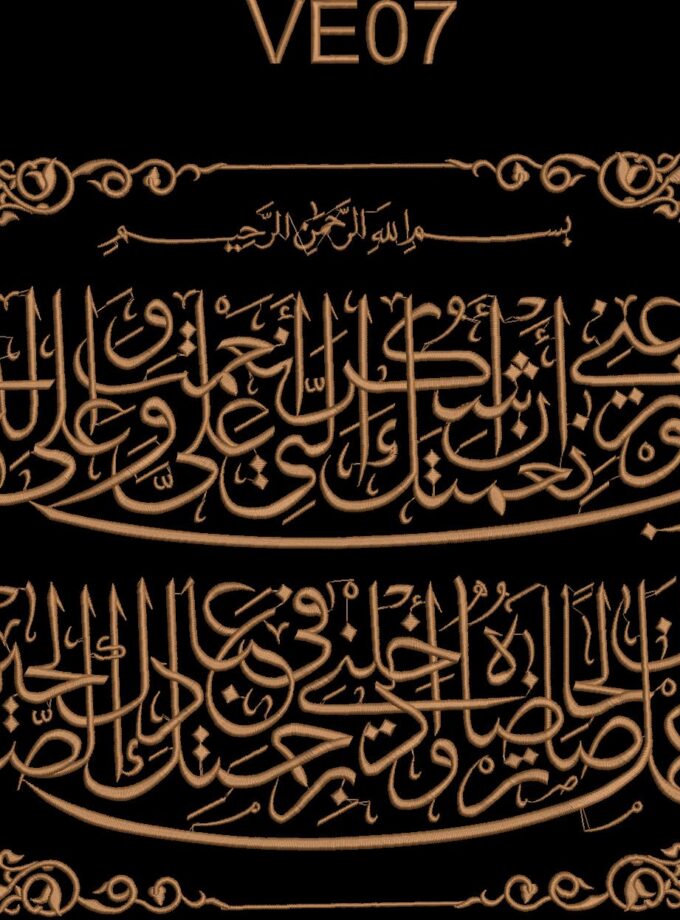 VE07
بسم الله الرحمن الرحيم
وزعني أن أشكر نعمتك التي أنعمت علي وعلى
صالحا ترضاه وأدخلني برحمتك في عبادك الصالحين